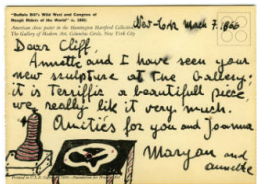 "Buffalo Bill's Wild West and Congress of
Rough Riders of the World"
American show poster in the Huntington Hartford Collection
The Gallery of Modern Art, Columbus Circle, New York City
New-York March 7. 1966
Dear Cliff,
Annette and I have seen your
new sculpture at the Gallery.
it is Terrific a beautifull piece,
we really like it very much.
Amities for you and Joanna
Maryan and
annette
Printed in U.S.A.